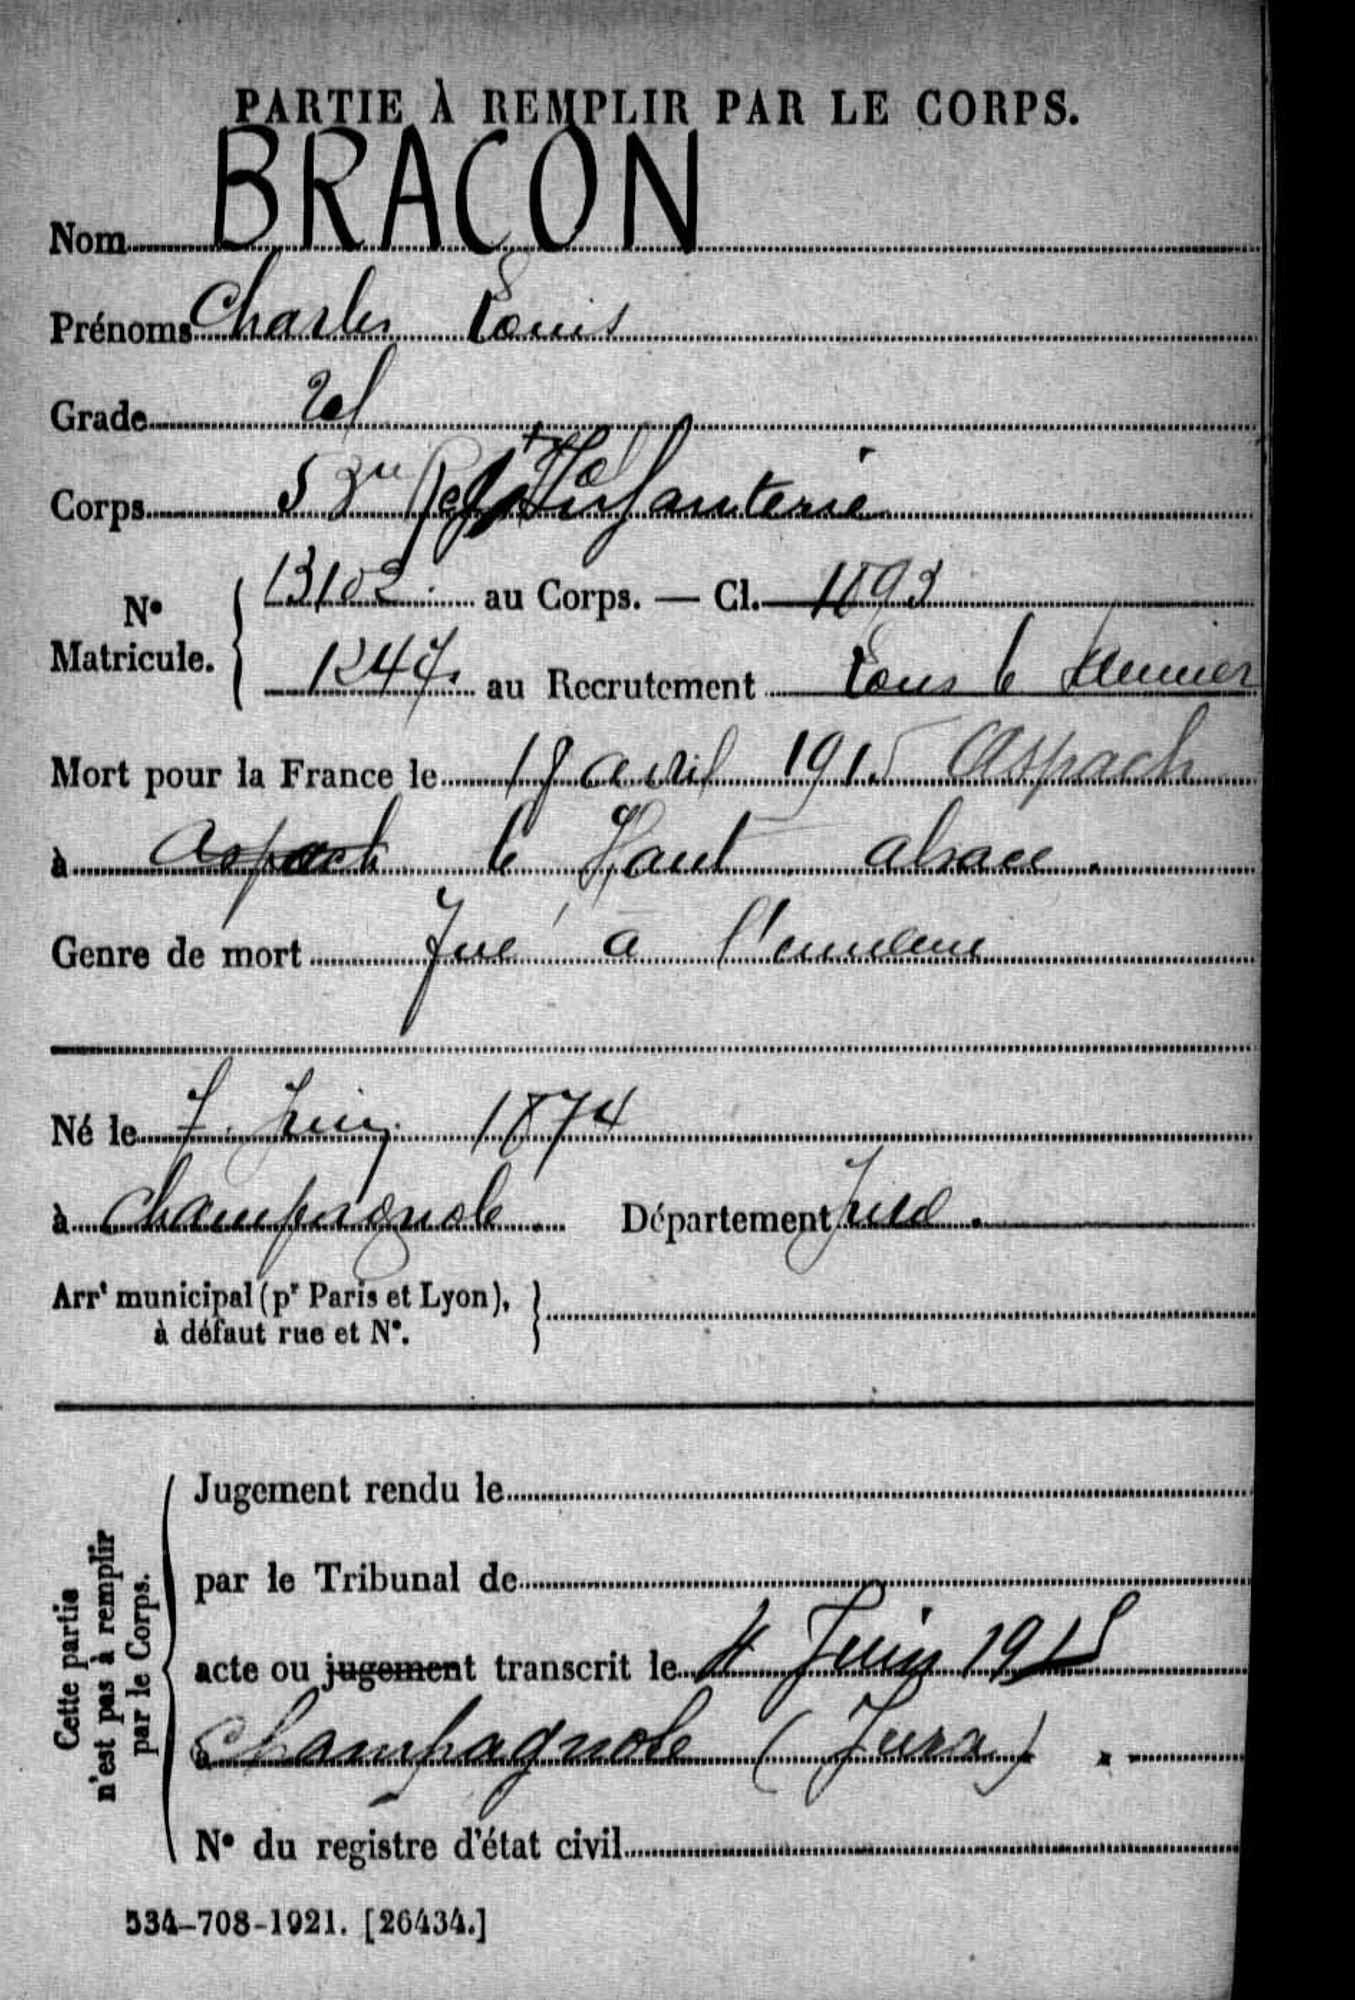 PARTIE À REMPLIR PAR LE CORPS.
Nom BRACON
Prénoms Charles Louis
Grade
Corps 5 Regt d'Infanterie
N° Matricule. 13102 au Corps. — Cl. 1893
1247 au Recrutement Lons le Saunier
Mort pour la France le 18 avril 1915 Aspach
à Aspach le Haut alsace.
Genre de mort Tué à l'ennemi
Né le 7 juin 1874
à Champagnole Département Jura.
Arrt municipal (pr Paris et Lyon),
à défaut rue et N°.
Cette partie
n'est pas à remplir
par le Corps.
Jugement rendu le
par le Tribunal de
acte ou jugement transcrit le 4 Juin 1915
à Champagnole (Jura)
N° du registre d'état civil
534-708-1921. [26434.]